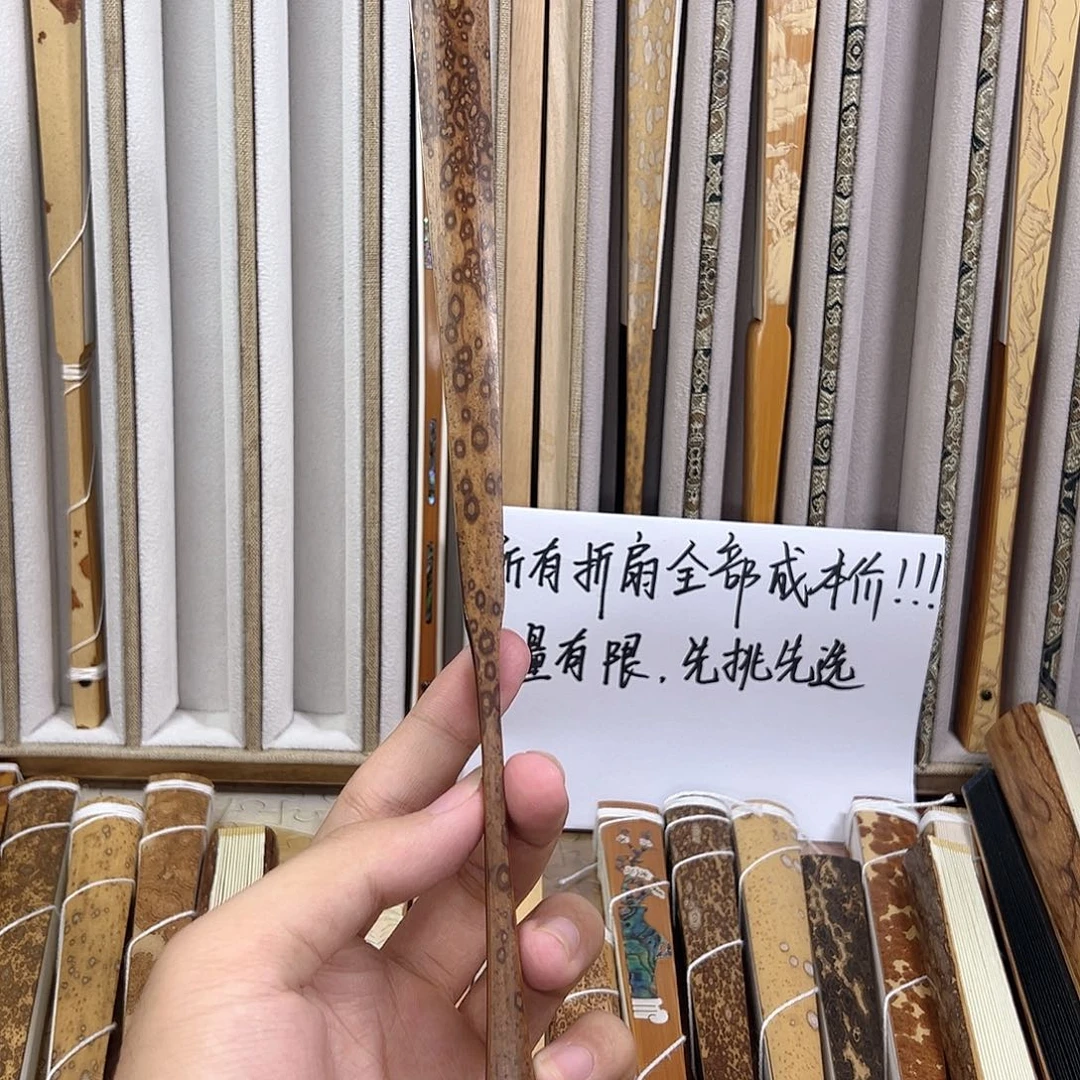 所有折扇全部成本价!!!
量有限.先挑先选